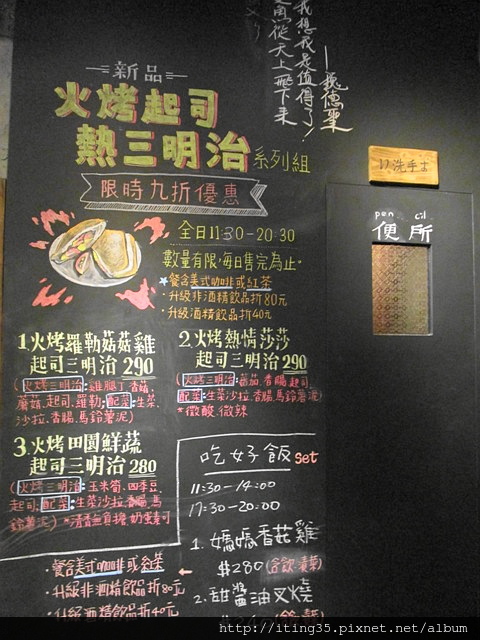 我想我是值得了!
魚從天上飛下來
新品
火烤起司
熱三明治系列組
限時九折優惠
全日11:30-20:30
數量有限‧每日售完為止‧
餐含美式咖啡或紅茶
‧升級非酒精飲品折80元
‧升級酒精飲品折40元
1.火烤羅勒菇菇雞
起司三明治 290
(火烤三明治:雞腿丁.香菇.
蘑菇.起司.羅勒;配菜:生菜.
沙拉.香腸.馬鈴薯泥)
2.火烤熱情莎莎
起司三明治 290
(火烤三明治:蕃茄.香腸.起司.
配菜:生菜沙拉.香腸.馬鈴薯泥)
*微酸.微辣
3.火烤田園鮮蔬
起司三明治 280
(火烤三明治:玉米筍.四季豆.
起司.配菜:生菜沙拉.香腸.馬
鈴薯泥)
‧餐含美式咖啡或紅茶
‧升級非酒精飲品折80元
‧升級酒精飲品折40元
吃好飯 set
11:30-14:00
17:30-20:00
1. 媽媽香菇雞
$280
2. 甜醬油叉燒
洗手土
便所
http://iting35.pixnet.net/album